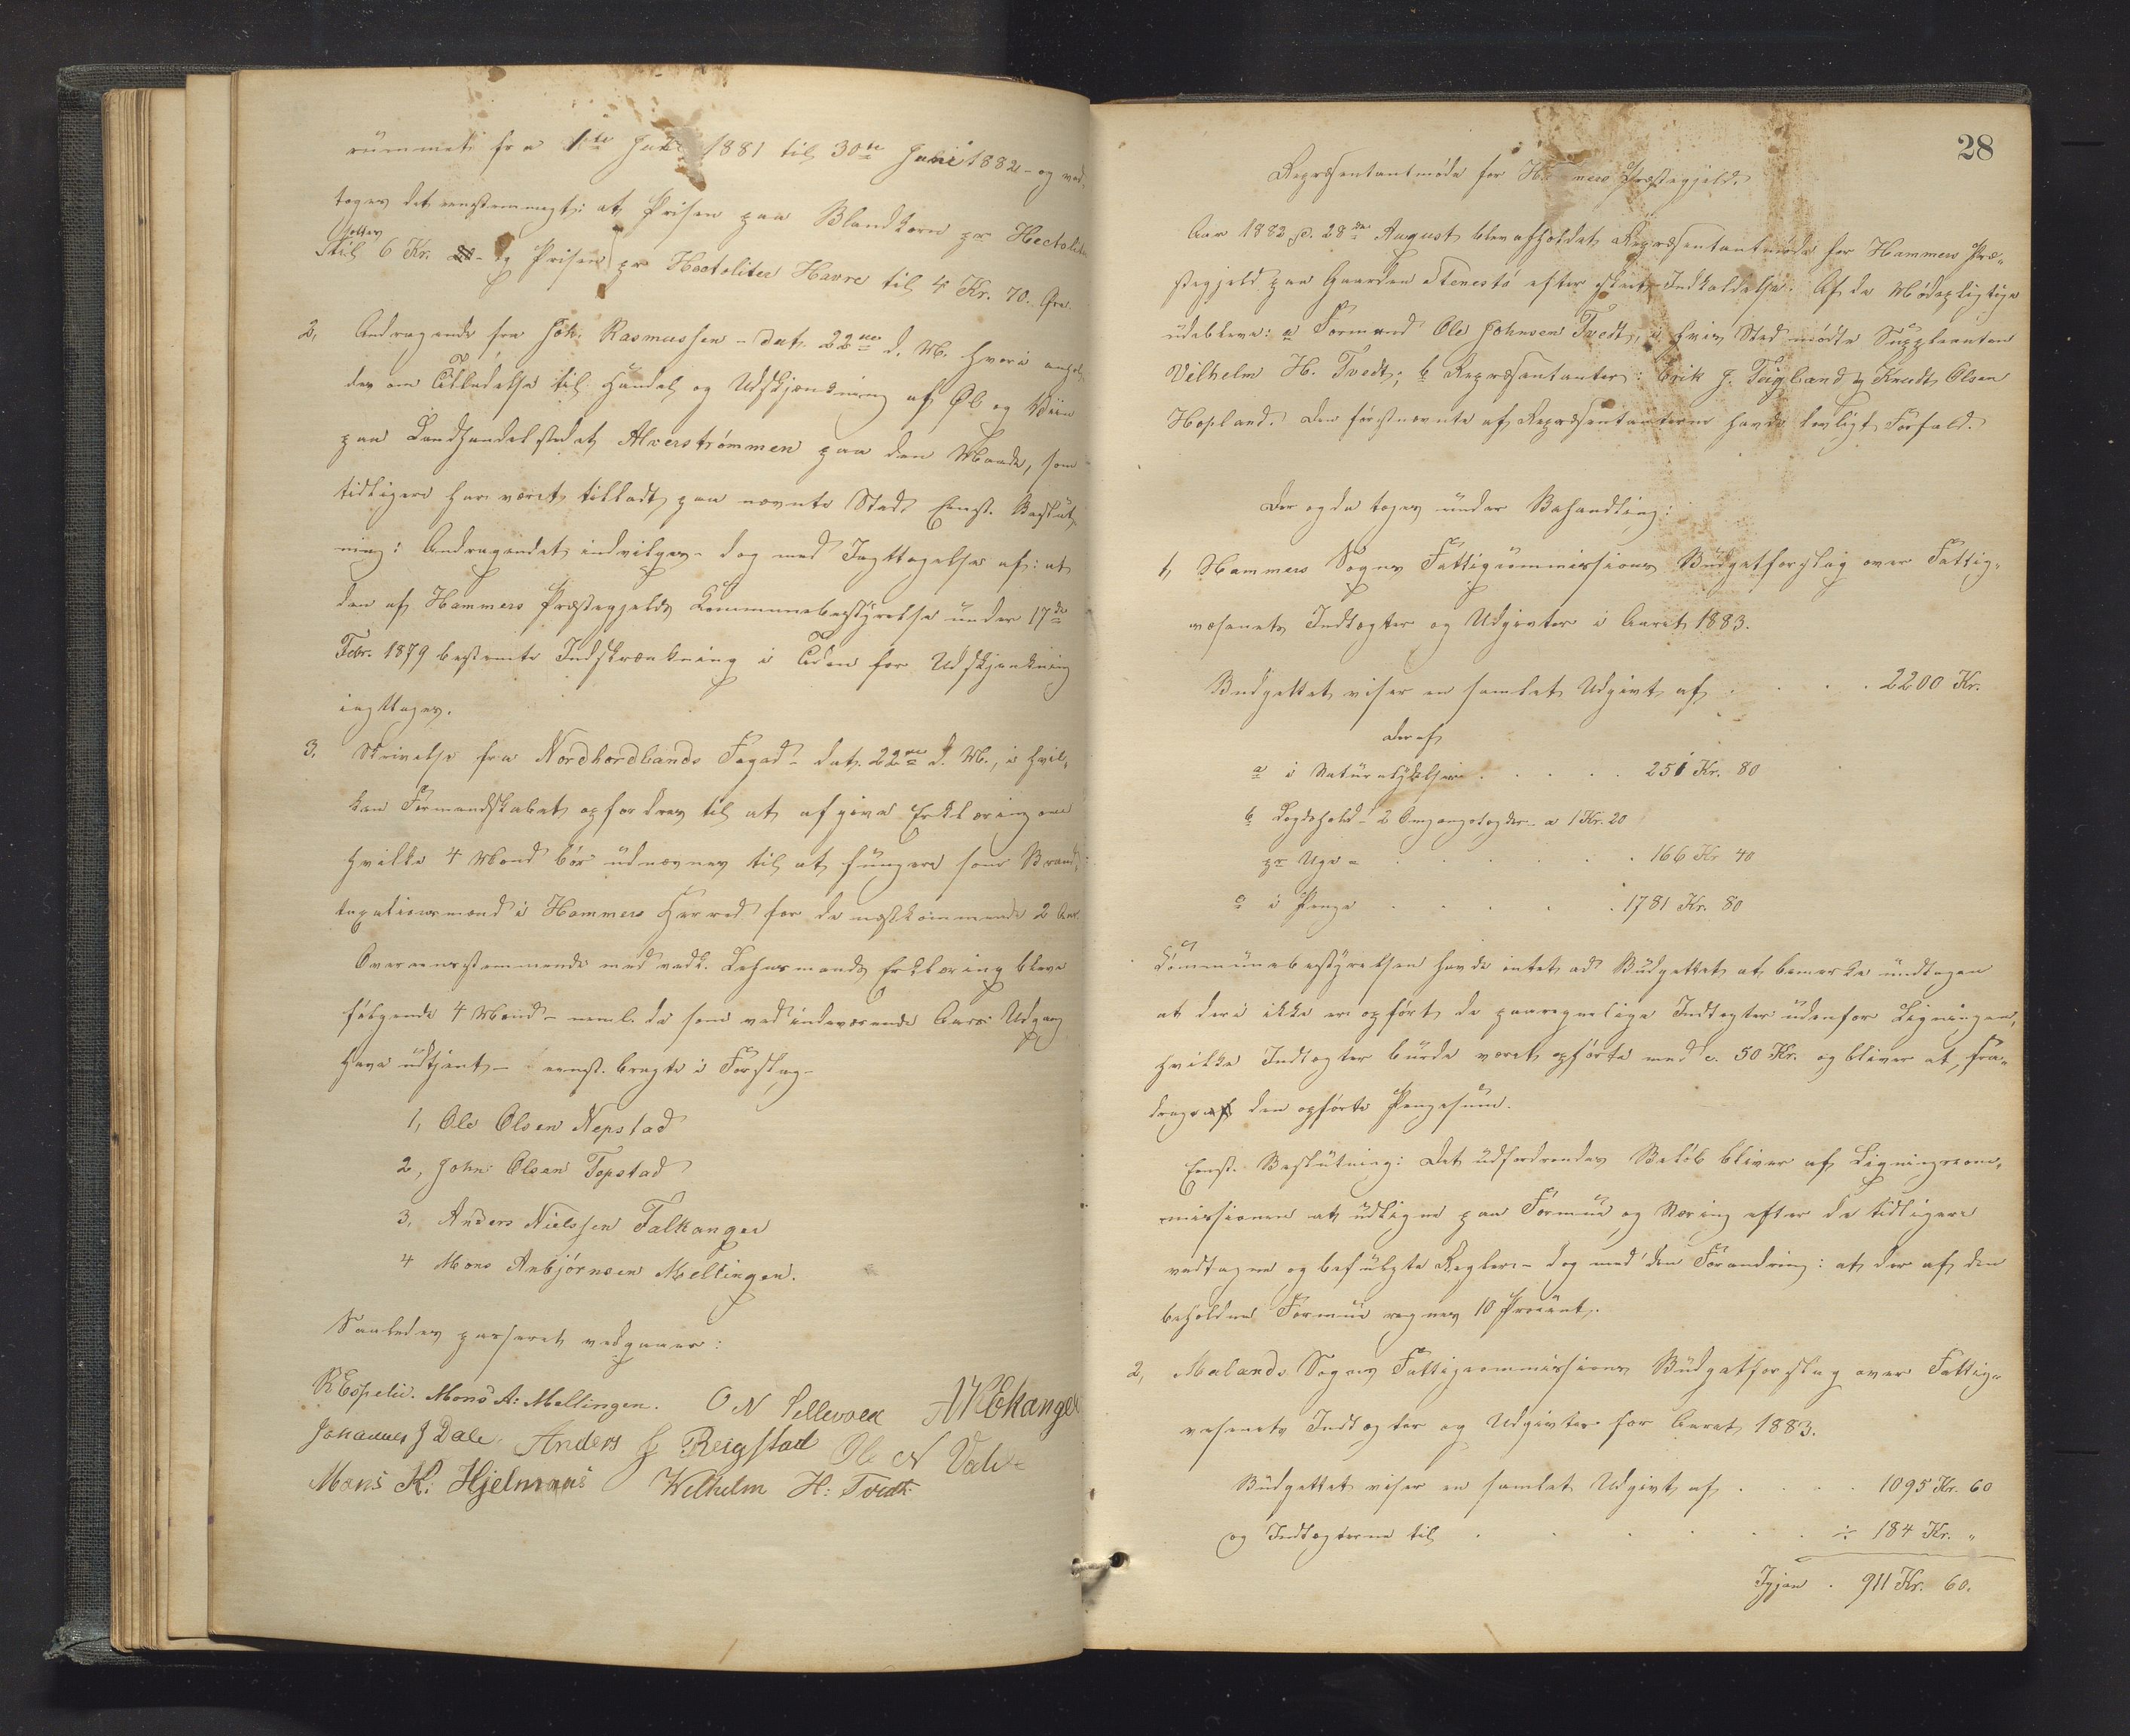 rummet fra 1ste Juli 1881 til 30te Juni 1882 - og ved-
toges det eenstemmigt: at Prisen paa Blandkorn pr Hectoliter
sættes
til 6 Kr. - og Prisen pr Hectoliter Havre til 4 Kr. 70. Øre.
2, Andragende fra Joh. Rasmussen - dat. 22de d. M. hvori anhol-
des om Tilladelse til Handel og Udskjænkning af Øl og Viin
paa Landhandelstedet Alverstrømmen paa den Maade, som
tidligere har været tilladt paa nævnte Sted. Eenst. Beslut-
ning: Andragendet indvilges - dog med Iagttagelse af: at
den af Hammers Præstegjelds Kommunebestyrelse under 17de
Febr. 1879 bestemte Indskrænkning i Tiden for Udskjenkning
iagttages.
3. Skrivelse fra Nordhordlands Foged - dat. 22de d. M., i hvil-
ken Formandskabet opfordres til at afgive Erklæring om
hvilke 4 Mænd bør udnævnes til at fungere som Brand-
taxationsmænd i Hammers Herred for de næstkommende 2 Aar.
Overeensstemmende med vedk. Lehnsmands Erklæring bleve
følgende 4 Mænd - neml. de som ved indeværende Aars Udgang
have udtjent - eenst. bragte i Forslag -
1, Ole Olsen Nepstad
2, John Olsen Topstad
3, Anders Nielssen Falkanger
4 Mons Anbjørnsen Mellingen.
Saaledes passeret vedgaaes:
R Espelid. Mons A: Mellingen. O N Sellevold A K Ekanger
Johannes J Dale. Anders J Reigstad Ole N Vale
Mons K. Hjelmaas Wilhelm H: Tvedt
28
Repræsentantmøde for Hammers Præstegjeld.
Aar 1882 d. 28de August blev afholdt Repræsentantmøde for Hammers Præ-
stegjeld paa Gaarden Stenestø efter skeet Indkaldelse. Af de Mødepligtige
udebleve: a Formand Ole Johnsen Tvedt, i hvis Sted mødte Suppleanten
Vilhelm H. Tvedt; b Repræsentanter: Erik J. Teigland og Knudt Olsen
Hopland. Den førstnævnte af Repræsentanterne havde lovligt Forfald.
Der og da toges under Behandling:
1, Hammers Sogns Fattigcommissions Budgetforslag over Fattig-
væsenets Indtægter og Udgivter i Aaret 1883.
Budgettet viser en samlet Udgivt af . . . . 2200 Kr.
deraf
a i Naturalydelser . . . . . 251 Kr. 80
b Lægdehold - 2 Omgangslægder - a 1 Kr. 20
pr Uge = . . . . . . 166 Kr 40
c i Penge . . . . . 1781 Kr. 80
Kommunebestyrelsen havde intet ad Budgettet at bemærke undtagen
at deri ikke er opført de paaregnelige Indtægter udenfor Ligningen,
hvilke Indtægter burde været opførte med c. 50 Kr. og bliver at fra-
drage af den opførte Pengesum.
Eenst. Beslutning: Det udfordrendes Beløb bliver af Ligningscom-
missionen at udligne paa Formue og Næring efter de tidligere
vedtagne og befulgte Regler - dog med den Forandring: at der af den
beholdne Formue regnes 10 Procent.
2, Mælands Sogns Fattigcommissions Budgetforslag over Fattig-
væsenets Indtægter og Udgivter for Aaret 1883.
Budgettet viser en samlet Udgivt af . . . . 1095 Kr. 60
og Indtægterne til . . . . . . ÷ 184 Kr. "
Igjen . 911 Kr. 60.